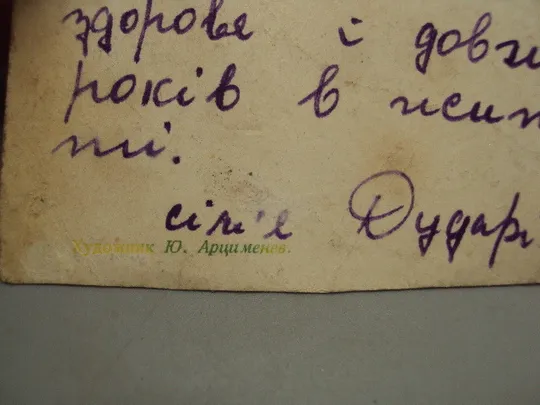 здоровя і довг
років в жит
ті.
сім'я Дудар
Художник Ю. Арцименев.